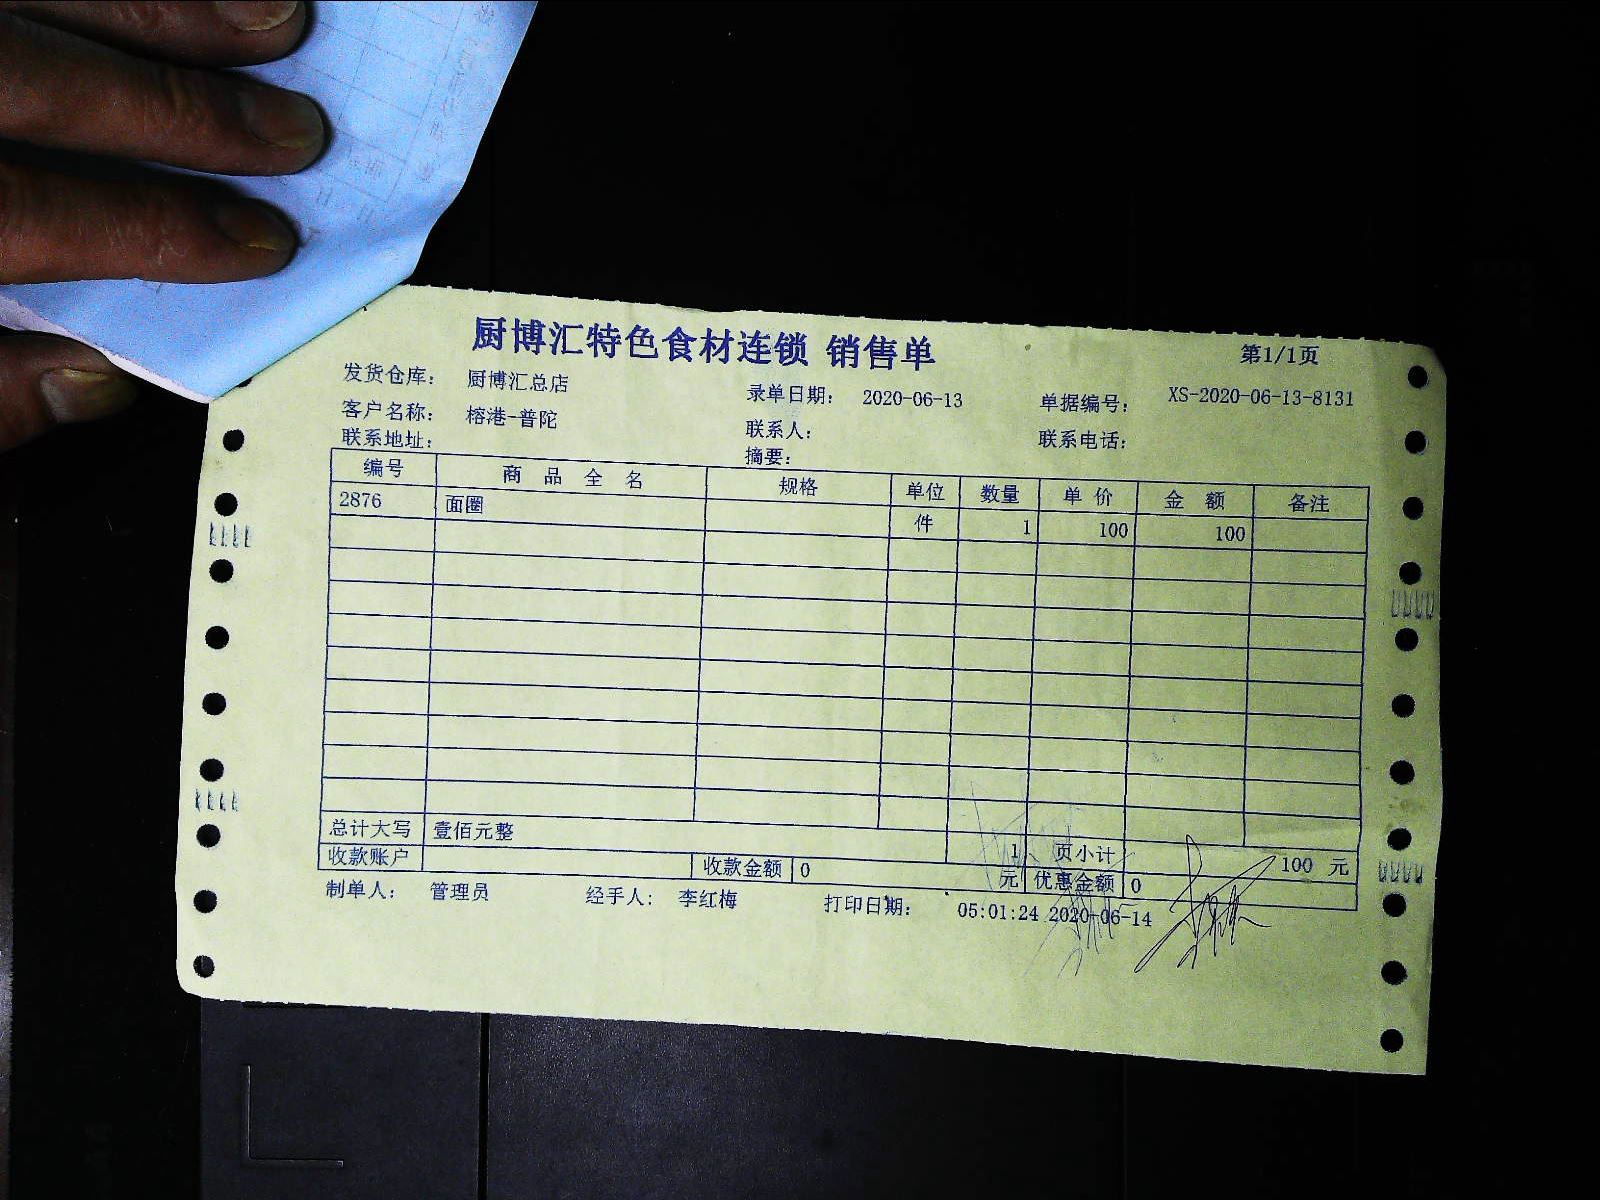 厨博汇特色食材连锁 销售单 第1/1页
发货仓库： 厨博汇总店 录单日期： 2020-06-13 单据编号： XS-2020-06-13-8131
客户名称： 榕港-普陀 联系人： 联系电话：
联系地址： 摘要：
编号 商 品 全 名 规格 单位 数量 单 价 金 额 备注
2876 面圈 件 1 100 100
总计大写 壹佰元整 1 页小计 100 元
收款账户 收款金额 0 元 优惠金额 0
制单人： 管理员 经手人： 李红梅 打印日期： 05:01:24 2020-06-14